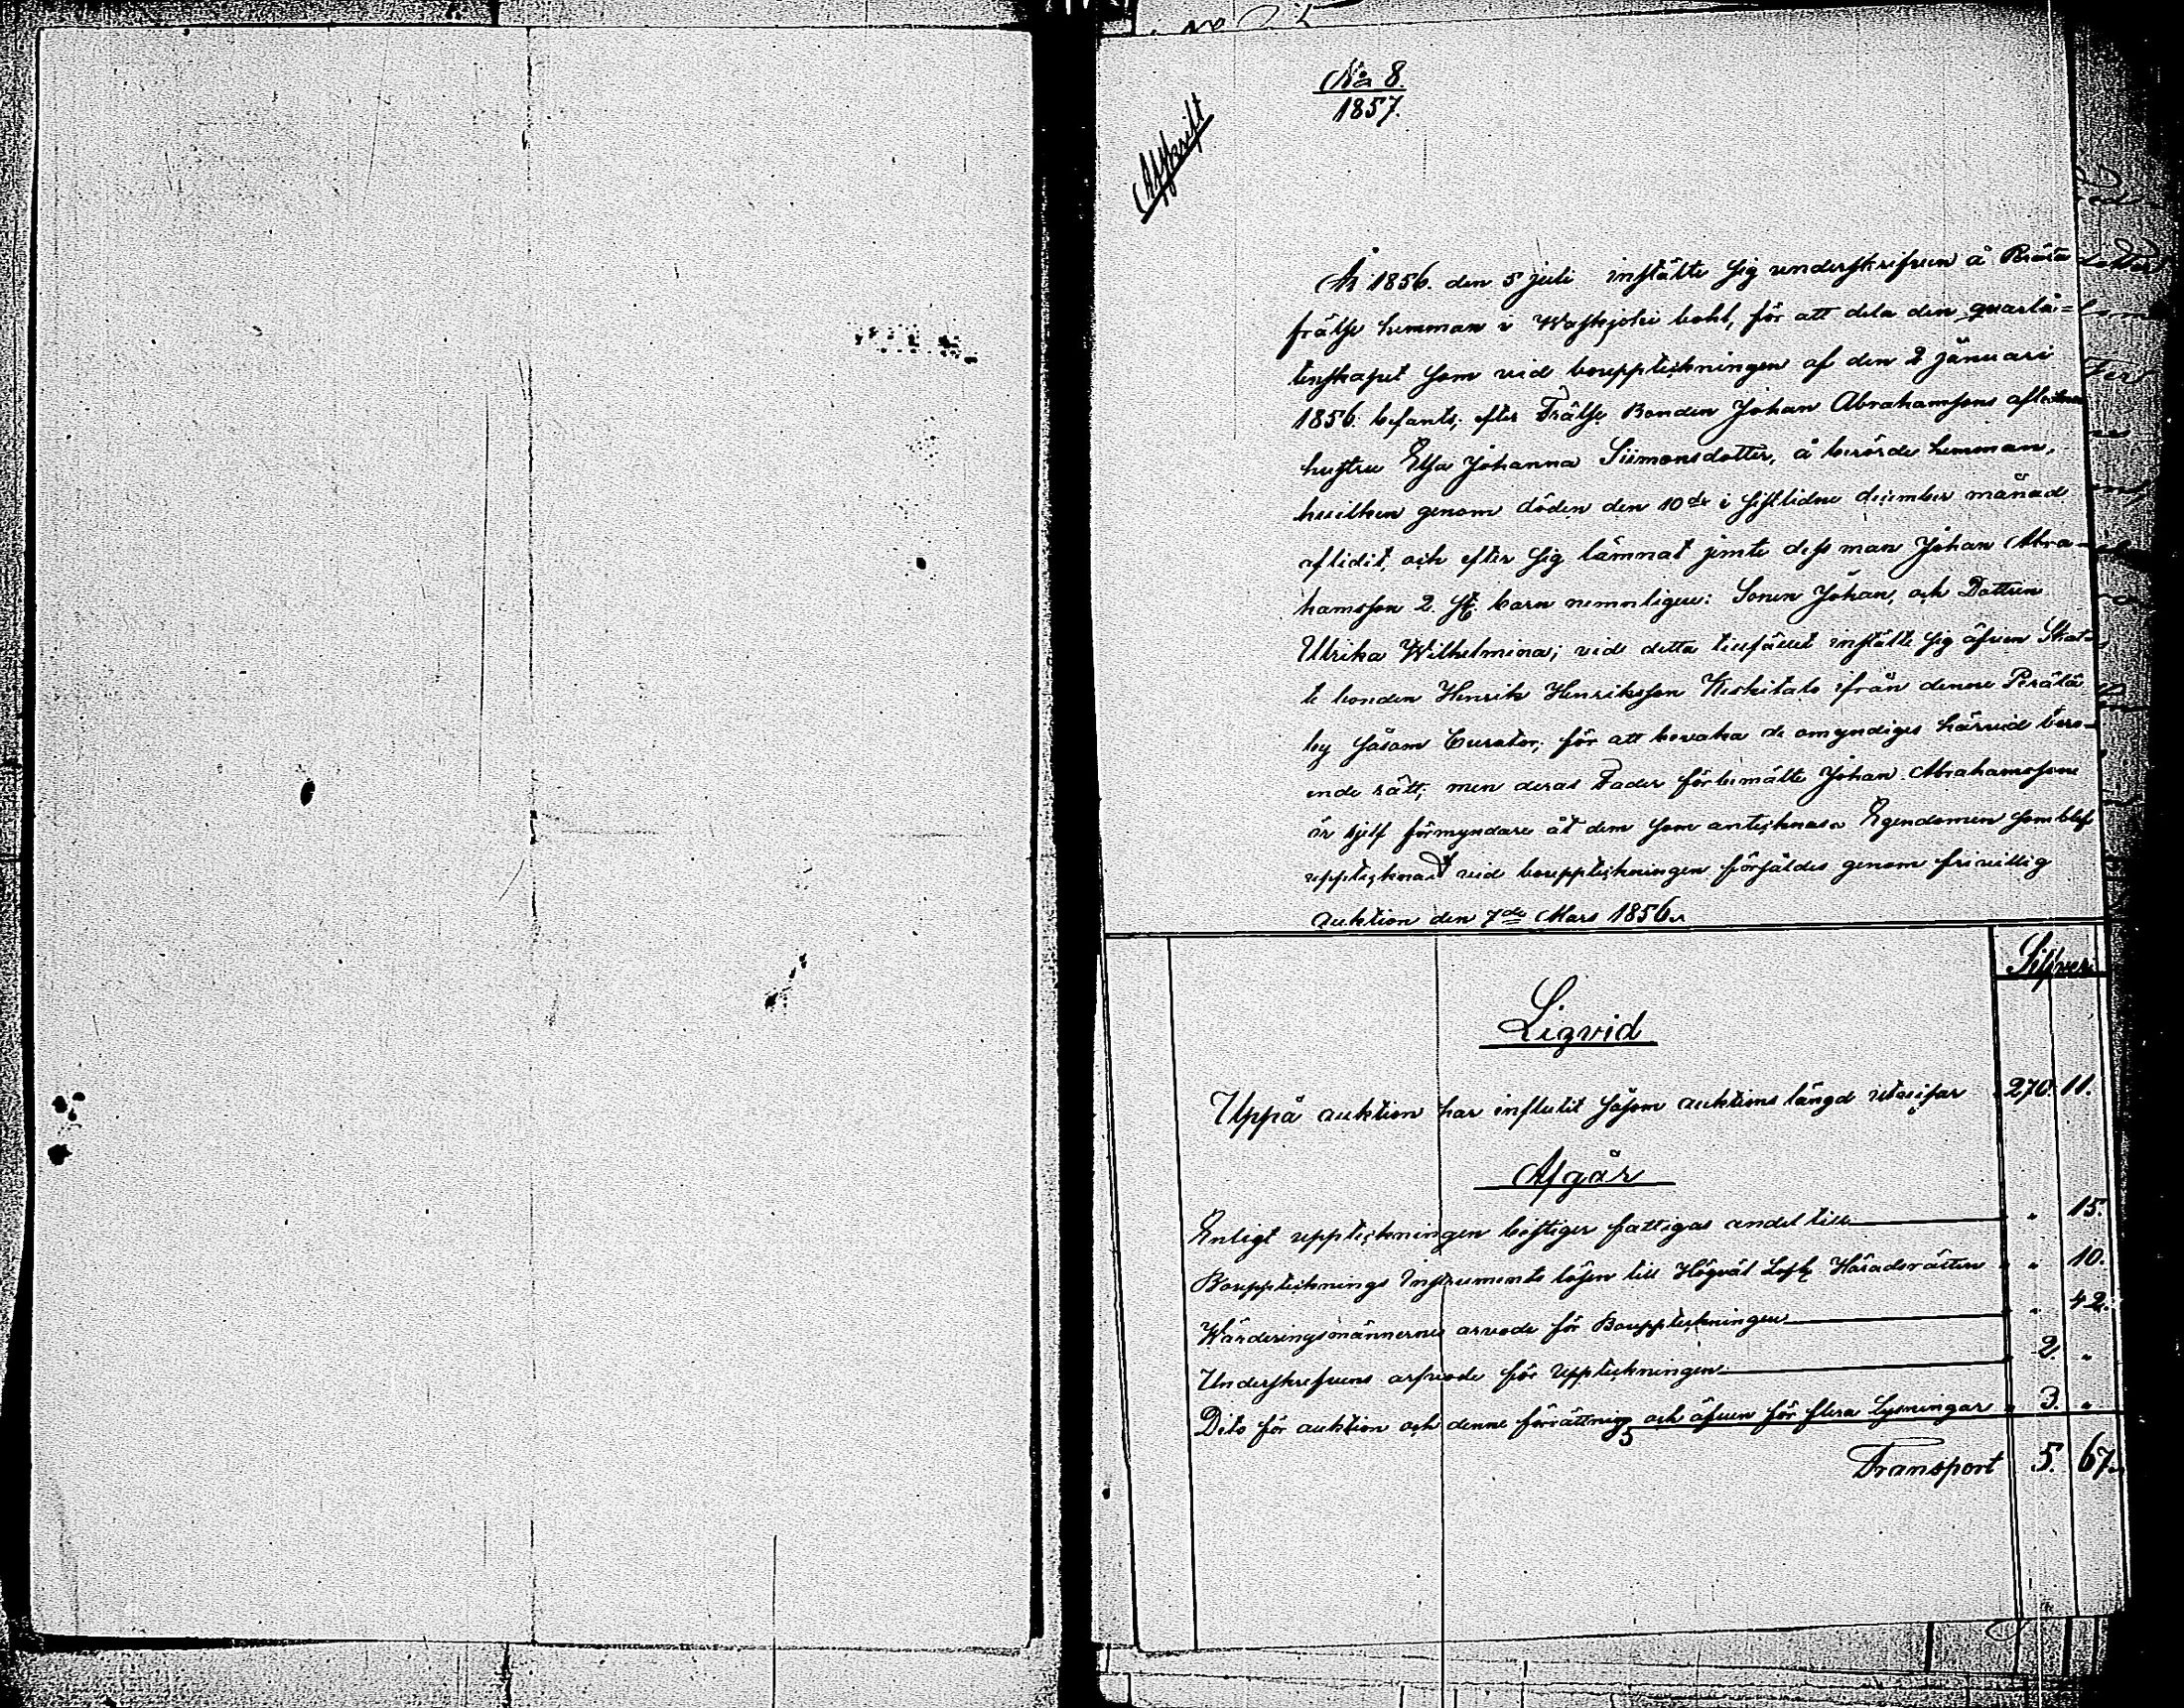 No 8.
1857.
Afskrift
År 1856. den 5 juli instälte sig underskrifven å Peräla
frälse hemman i Waskjoki bohl, för att dela den quarlå=
tenskapet som vid boupptekningen af den 2 januari
1856. befants, efter Frälse Bonden Johan Abrahamsons aflidna
hustru Elsa Johanna Siimonsdotter, å berörde hemman,
hvilken genom döden den 10de i sistlidne december månad
aflidit, och efter sig lämnat jemte dess man Johan Abra-
hamsson 2. st. barn nemnligen: Sonen Johan, och Dottren
Ulrika Wilhelmina; vid detta tillfället instälte sig äfven Skat-
te bonden Henrik Henriksson Kiskitalo ifrån denne Perälä
by såsom Curator, för att bevaka de omyndiges härvid bero-
ende rätt, men deras Fader förbemälte Johan Abrahamsson
är sjelf förmyndare åt dem som anteknas. Egendomen som blef
uppteknadt vid boupptekningen försåldes genom frivillig
auktion den 7de Mars 1856.
Silfver
Liqvid
Uppå auktion har influtit såsom auktions längd utvisar 270. 11.
Afgår
Enligt upptekningen bestiger fattigas andel till " 15.
Bouppteknings Instruments lösen till Högväl Lofl. Häradsrätten " " 10.
Wärderingsmännernes arvode för Boupptekningen " 42.
Underskrefvens arfvode för Upptekningen " 2. "
Dito för auktion och denne förrättning och äfven för flera Lysningar " 3. "
Transport 5. 67.